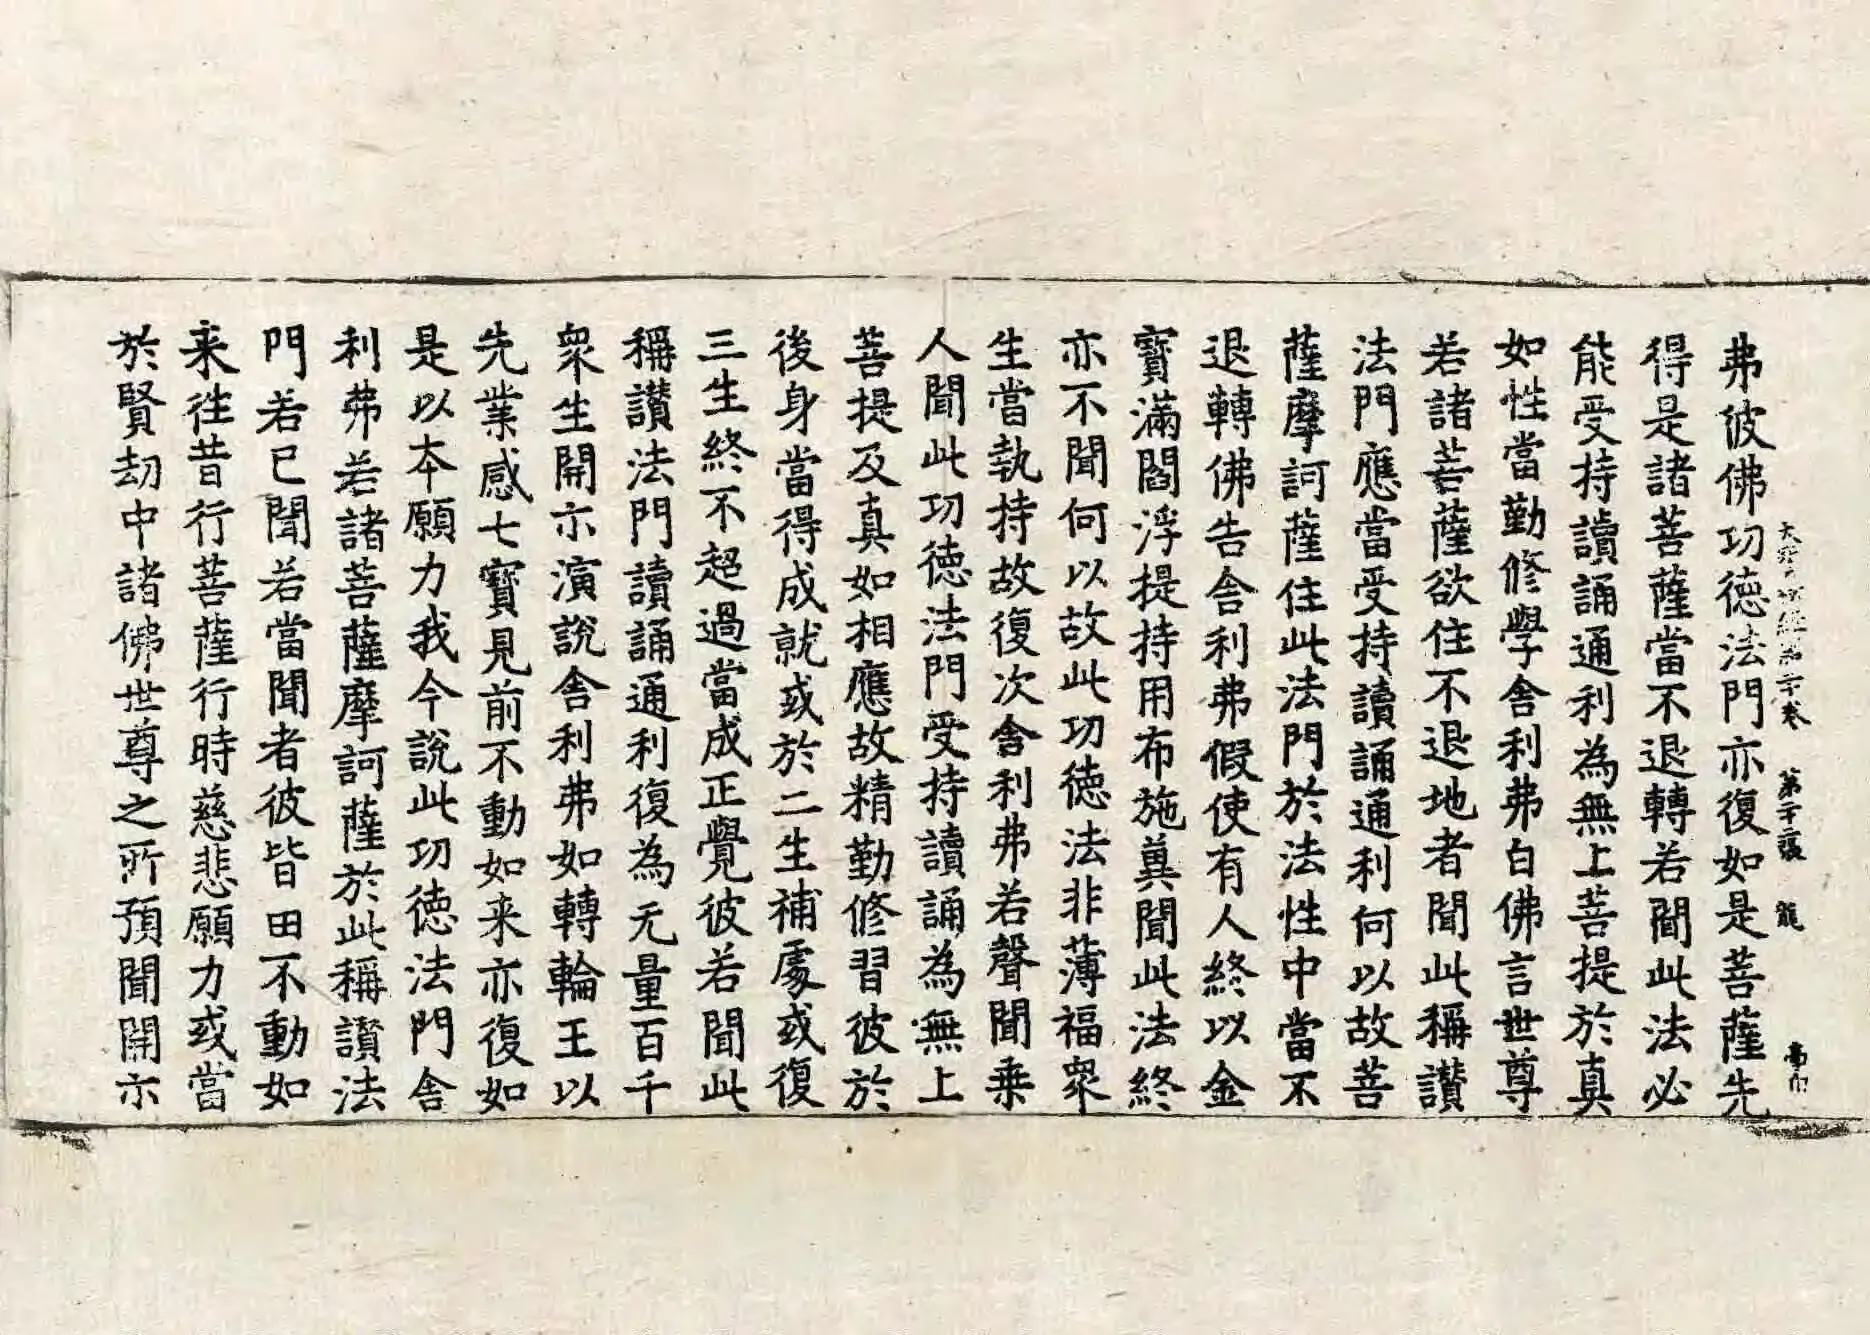 大寶積經第二十卷 第二十張 龍
弗彼佛功德法門亦復如是菩薩先
得是諸菩薩當不退轉若聞此法必
能受持讀誦通利為無上菩提於真
如性當勤修學舎利弗白佛言世尊
若諸菩薩欲住不退地者聞此稱讃
法門應當受持讀誦通利何以故菩
薩摩訶薩住此法門於法性中當不
退轉佛告舎利弗假使有人終以金
寶滿閻浮提持用布施兾聞此法終
亦不聞何以故此功德法非薄福衆
生當執持故復次舎利弗若聲聞乗
人聞此功德法門受持讀誦為無上
菩提及真如相應故精勤修習彼於
後身當得成就或於二生補處或復
三生終不超過當成正覺彼若聞此
稱讃法門讀誦通利復為无量百千
衆生開示演說舎利弗如轉輪王以
先業感七寶見前不動如来亦復如
是以本願力我今說此功德法門舎
利弗若諸菩薩摩訶薩於此稱讃法
門若已聞若當聞者彼皆由不動如
来往昔行菩薩行時慈悲願力或當
於賢劫中諸佛世尊之所預聞開示